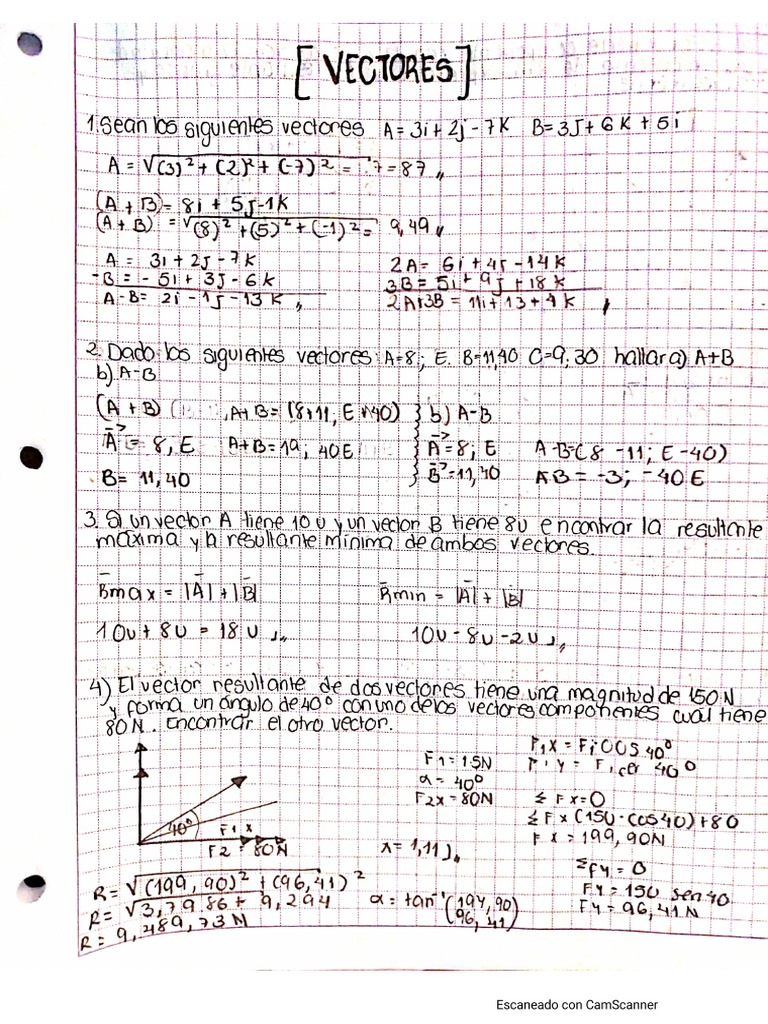 [VECTORES]
1. Sean los siguientes vectores A = 3i + 2j - 7K B = 3J + 6K + 5i
A = √(3)² + (2)² + (-7)² = 7 = 87
(A + B) = 8i + 5J - 1K
(A + B) = √(8)² + (5)² + (-1)² = 9,49
A = 3i + 2J - 7K
-B = - 5i + 3J - 6K
A-B = 2i - 1J - 13K
2A = 6i + 4J - 14K
3B = 5i + 9J + 18K
2A+3B = 11i + 13 + 4K
2. Dado los siguientes vectores A=8; E. B=11,40 C=9,30 hallar a) A+B
b) A-B
(A + B) A+B = (8+11, E+40)
A = 8, E A+B = 19, 40E
B = 11, 40
b) A-B
A = 8; E A-B=(8 -11; E-40)
B = 11, 40 AB = -3; -40E
3. Si un vector A tiene 10u y un vector B tiene 8u encontrar la resultante
maxima y la resultante minima de ambos vectores.
Bmax = |A| + |B| Rmin = |A| + |B|
10u + 8u = 18u 10u - 8u - 2u
4) El vector resultante de dos vectores tiene una magnitud de 150N
y forma un ángulo de 40° con uno de los vectores componentes cual tiene
80N. Encontrar el otro vector.
40°
F1 x
F2 = 80N
F1 = 15N
α = 40°
F2x = 80N
x = 1,11
F1x = F1 COS 40°
F1y = F1 40°
Σ Fx = 0
Σ Fx (150 · cos 40) + 80
Fx = 199,90N
Σ Fy = 0
Fy = 150 sen 40
Fy = 96,41N
R = √(199,90)² + (96,41)²
R = √3,7986 + 9,294
R = 9,489,73N
α = tan⁻¹ (194,90
96,41)
Escaneado con CamScanner